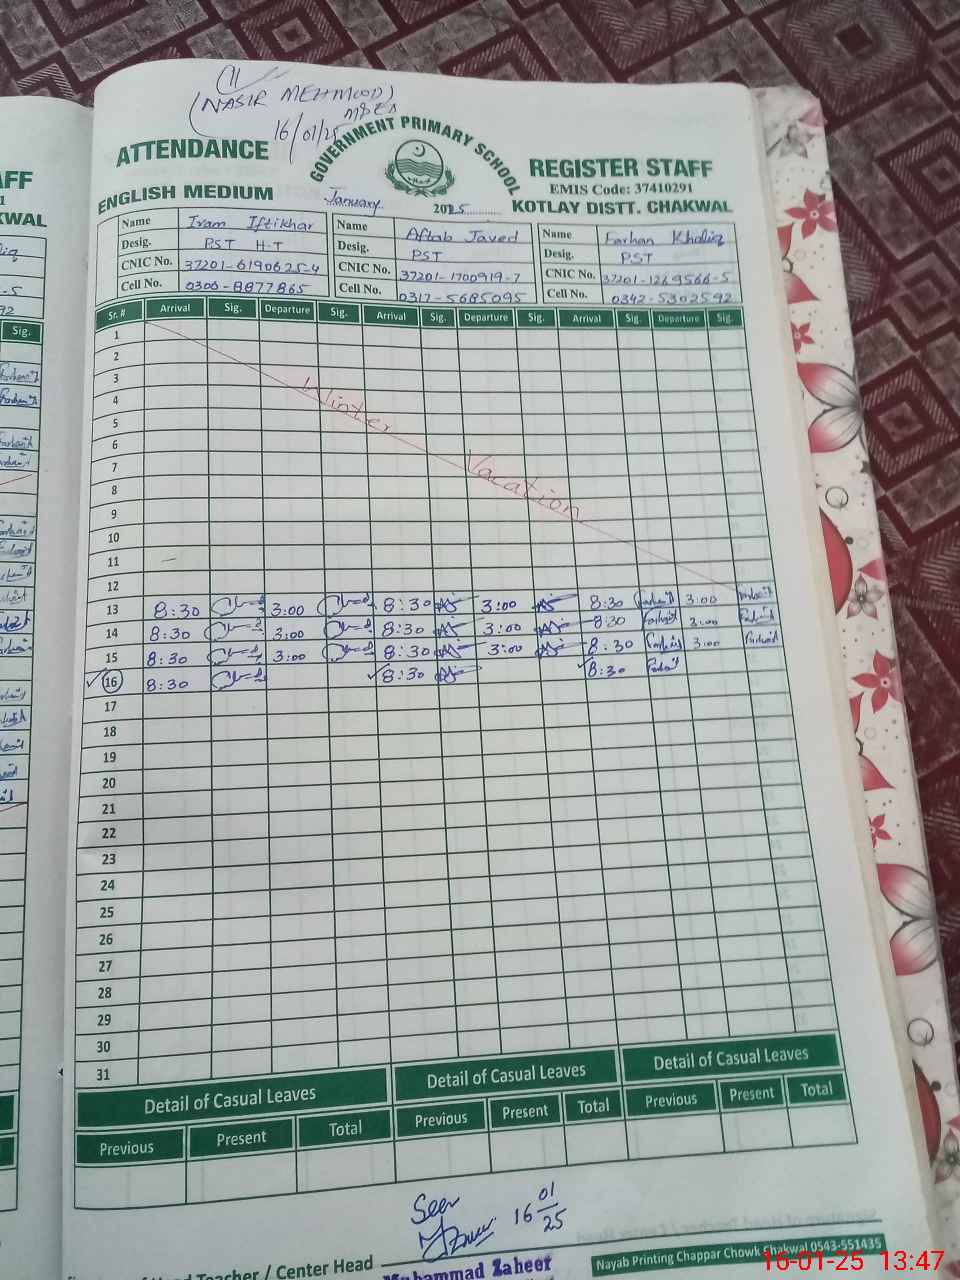 (NASIR MEHMOOD)
MPEO
16/01/25
GOVERNMENT PRIMARY SCHOOL
ATTENDANCE
REGISTER STAFF
EMIS Code: 37410291
ENGLISH MEDIUM
January 2025
KOTLAY DISTT. CHAKWAL
Name Iram Iftikhar Name Aftab Javed Name Farhan Khaliq
Desig. PST H-T Desig. PST Desig. PST
CNIC No. 37201-6190625-4 CNIC No. 37201-1700919-7 CNIC No. 37201-1269566-5
Cell No. 0306-8877865 Cell No. 0317-5685095 Cell No. 0342-5302592
Sr. # Arrival Sig. Departure Sig. Arrival Sig. Departure Sig. Arrival Sig. Departure Sig.
1
2
3
4
5
6
7
8
9
10
11
12
Winter Vacation
13 8:30 3:00 8:30 3:00 8:30 Farhan 3:00 Farhan
14 8:30 3:00 8:30 3:00 8:30 Farhan 3:00 Farhan
15 8:30 3:00 8:30 3:00 8:30 Farhan 3:00 Farhan
16 8:30 8:30 8:30 Farhan
17
18
19
20
21
22
23
24
25
26
27
28
29
30
31
Detail of Casual Leaves Detail of Casual Leaves Detail of Casual Leaves
Previous Present Total Previous Present Total Previous Present Total
Seen
16 01/25
Teacher / Center Head
Muhammad Zaheer
Nayab Printing Chappar Chowk Chakwal 0543-551435
16-01-25 13:47
AFF
KWAL
Sig.